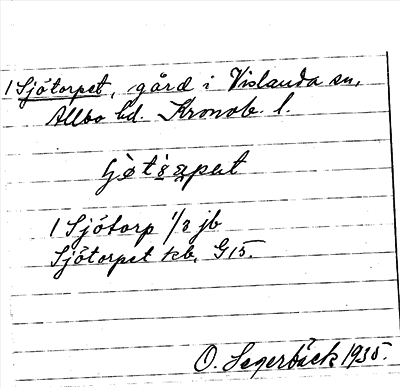 1 Sjötorpet, gård i Vislanda sn,
Allbo hd. Kronob. l.
1 Sjötorp 1/8 jb
Sjötorpet kb, G15.
O. Segerbäck 1935.